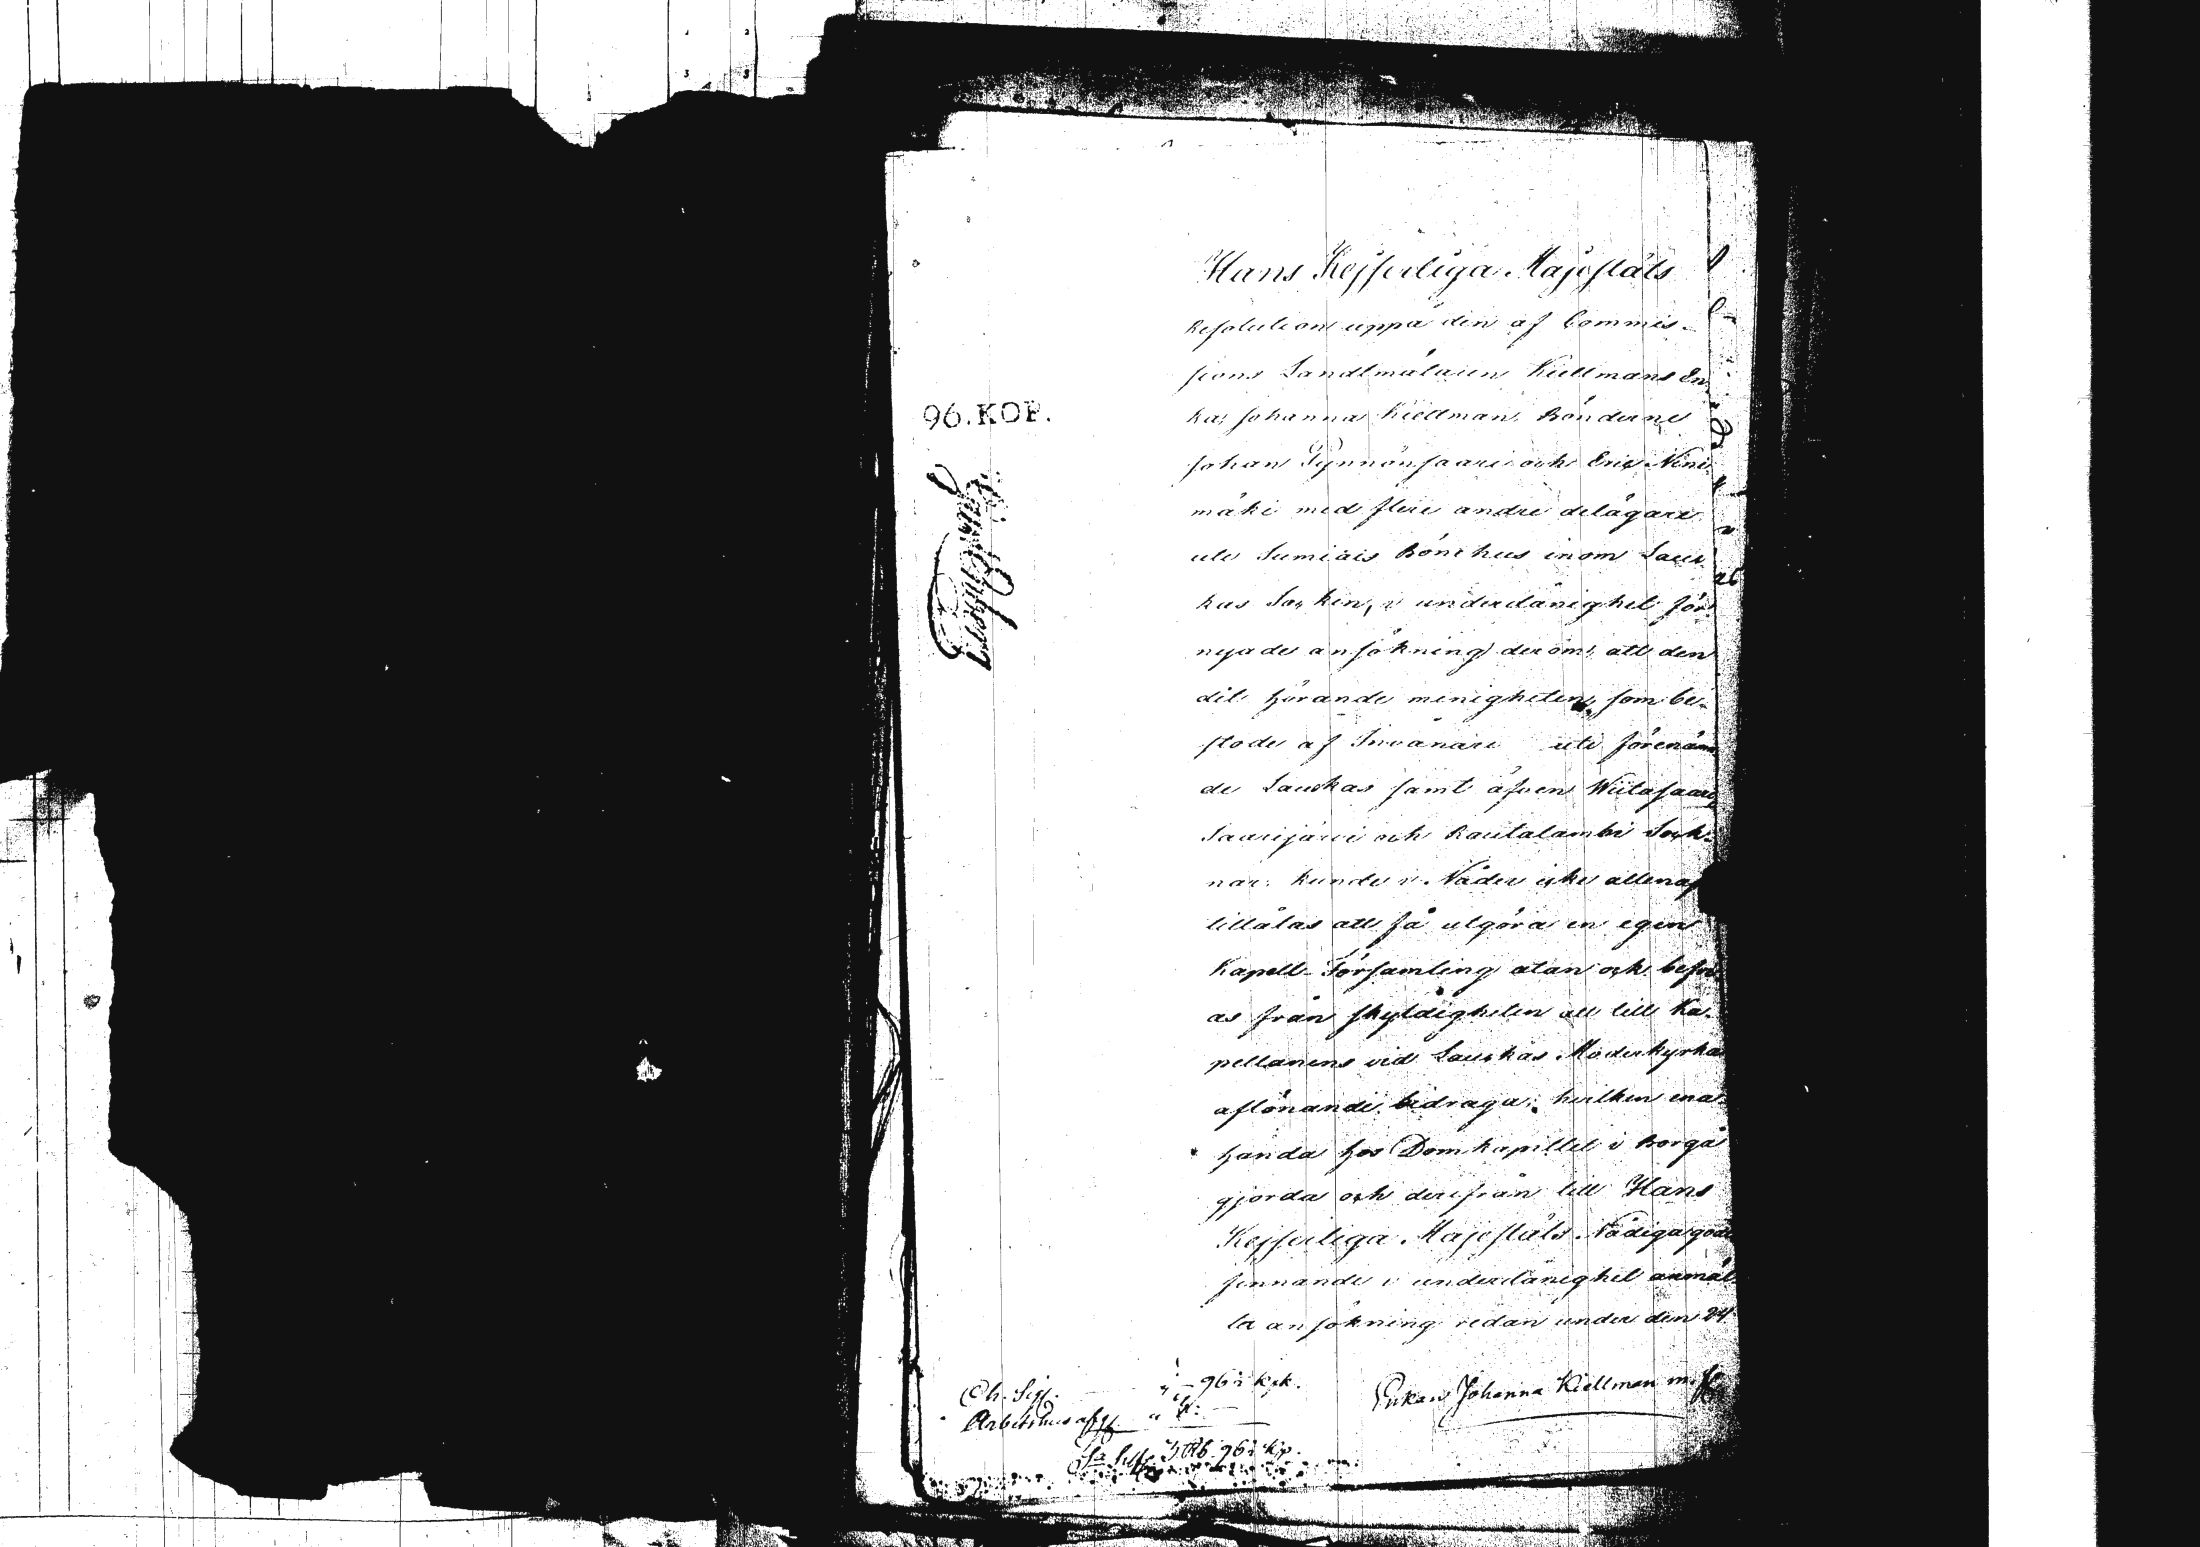 Hans Kejserliga Majestäts
Resolution uppå den af Commis-
sions Landtmätaren Kiellmans En-
ka, Johanna Kiellman, Bönderne
Johan Tynnönsaari och Eric Nini-
mäki med flere andre delägare
uti Sumiais Bönehus inom Lau-
kas Socken, i underdånighet för-
nyade ansökning derom, att den
dit hörande menigheten, som be-
stode af Invånare uti förenämn
de Laukas samt äfven Wiitasaari
Saarijärvi och Rautalambi Sock-
nar, kunde i Nåder icke allenast
tillåtas att få utgöra en egen
Kapell-Församling utan ock befri
as från skyldigheten att till Ka-
pellanens vid Laukas Moderkyrka
aflönande bidraga; hvilken ena
handa hos Domkapitlet i Borgå
gjorda och derifrån till Hans
Kejserliga Majestäts Nådiga god
finnande i underdånighet anmäl
ta ansökning redan under den 24
96. KOP.
Ch. Sig. - 96 kpk.
Arbetshus afg.
Sa Silf. 3 Rb. 96 kp.
Enkan Johanna Kiellman